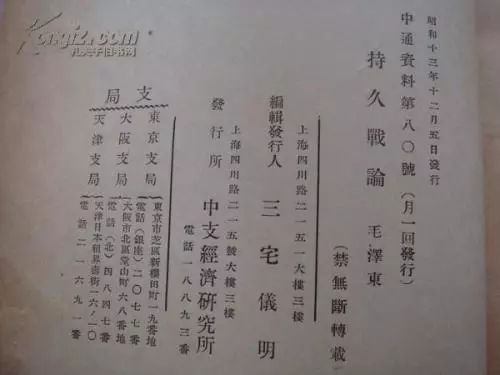 昭和十三年十二月五日發行
中通資料第八〇號（月一回發行）
持久戰論 毛澤東
（禁無斷轉載）
上海四川路二一五一大樓三樓
編輯發行人 三宅儀明
上海四川路二一五號大樓三樓
發行所 中支經濟研究所
電話一八八九三番
支局
東京支局 東京市芝區新櫻田町一九番地
電話（銀座）二〇七七番
大阪支局 大阪市北區堂山町六八番地
電話（北）四八四七番
天津支局 天津日本租界壽街一六ノ一〇
電話二一六九一番
Kongfz.com
孔夫子旧书网